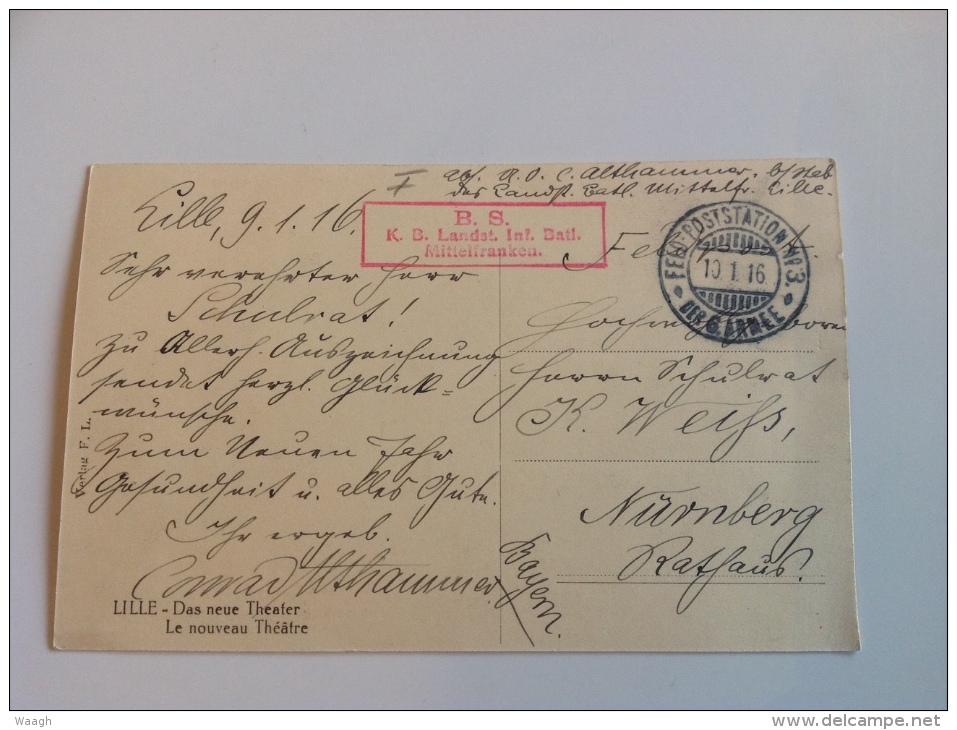 Abs. U. O. C. Althammer, b/Stab
des Landst. Batl. Mittelfr. Lille.
Lille, 9.1.16.
Sehr verehrter Herr
Schulrat!
Zu Allerh. Auszeichnung
sendet herzl. Glück-
wünsche.
Zum Neuen Jahr
Gesundheit u. alles Gute.
Ihr ergeb.
Conrad Althammer.
Verlag F. L.
LILLE - Das neue Theater
Le nouveau Théâtre
B. S.
K. B. Landst. Inf. Batl.
Mittelfranken.
FELDPOSTSTATION No 3
10.1.16
DER 6. ARMEE
Herrn Schulrat
K. Weiß,
Nürnberg
Rathaus.
Bayern.
Waagh
http://www.delcampe.net